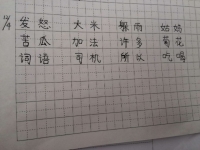 发怒 大米 躲雨 姑妈
苦瓜 加法 许多 菊花
词语 司机 所以 吃喝